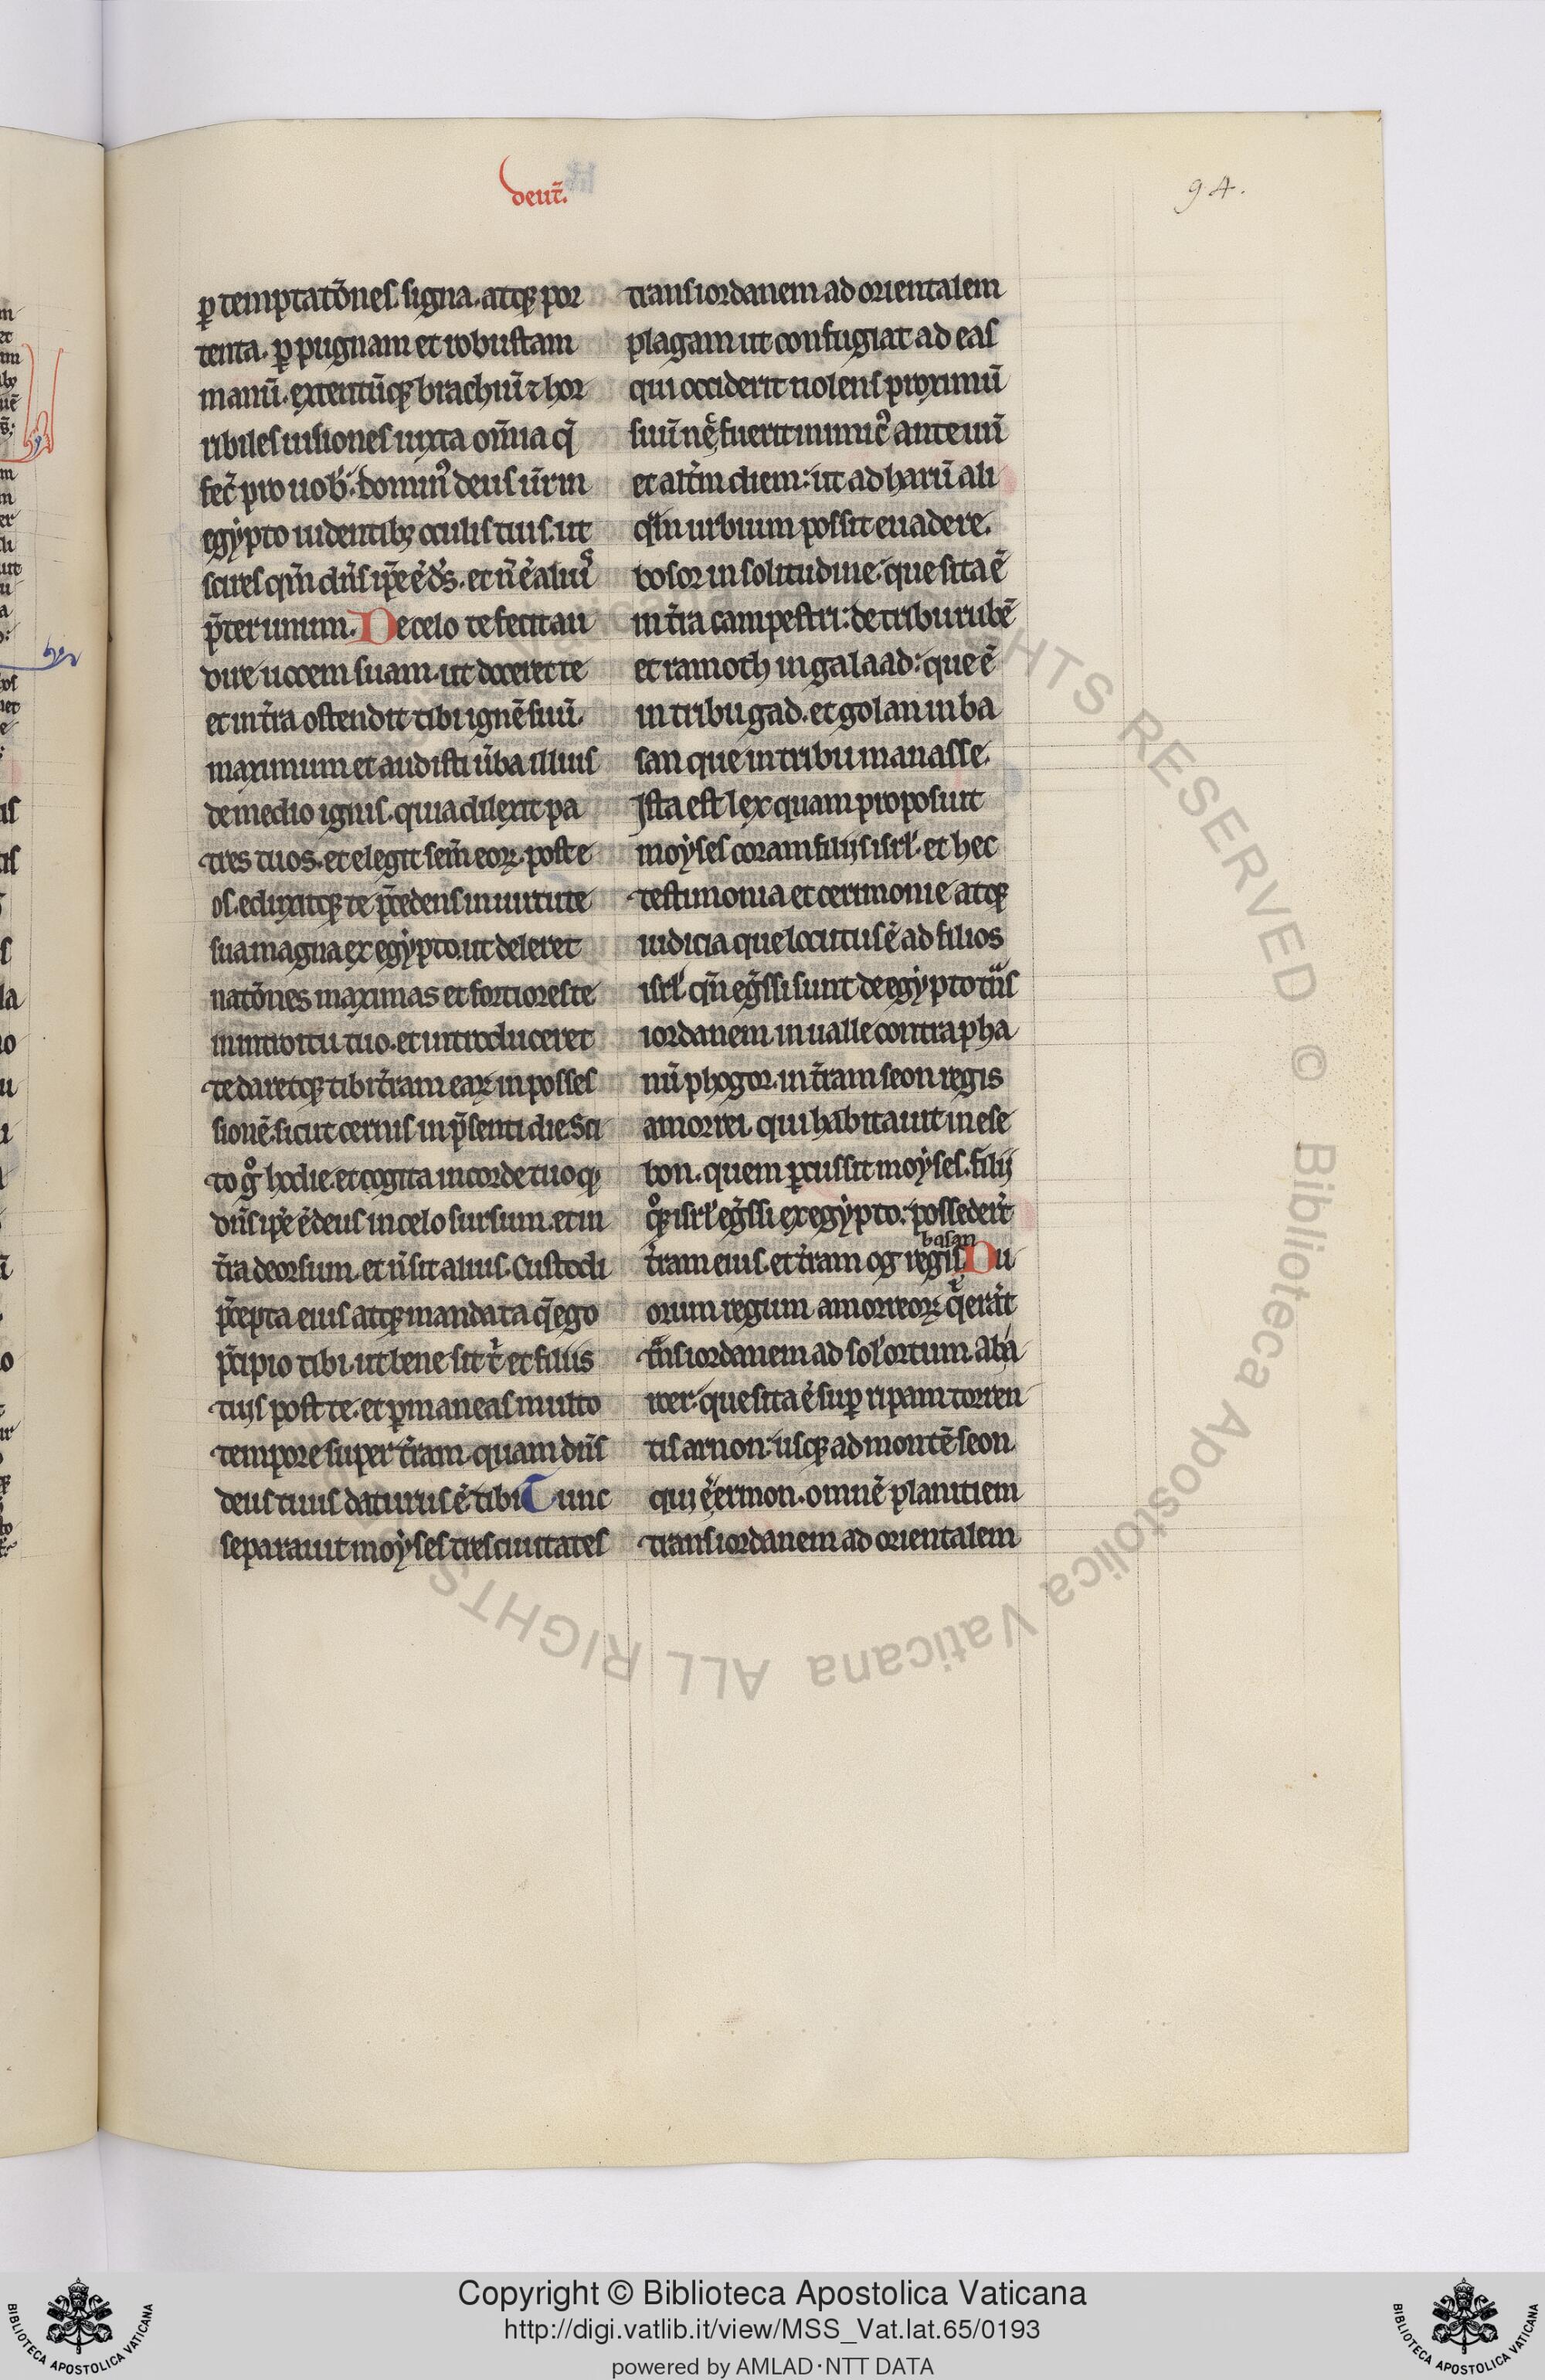 deut̃.
94.
ꝑ temptatõnes. signa. atqꝫ por
tenta. ꝑ pugnam et robustam
manũ. extentũqꝫ brachiũ ⁊ hor
ribiles uisiones iuxta om̃ia q̃
fec̃ pro uob̕. dominꝰ deus ur̃ in
egypto uidentibꝫ oculis tuis. ut
scires qm̃ dñs ip̃e ẽ ds̃. et ñ ẽ aliuˢ
p̃ter unum. De celo te fecit au
dire uocem suam. ut doceret te
et in tr̃a ostendit tibi ignẽ suũ.
maximum et audisti ũba illius
de medio ignis. quia dilexit pa
tres tuos. et elegit sem̃ eoꝝ. post e
os. eduxitqꝫ te p̃cedens in uirtute
sua magna ex egypto. ut deleret
natõnes maximas et fortiores te
in introitu tuo. et introduceret
te daretqꝫ tibi tr̃am eaꝝ in posses
sionẽ. sicut cernis in p̃senti die. Sci
to gͦ hodie. et cogita in corde tuo qꝫ
dñs ip̃e ẽ deus in celo sursum. et in
tr̃a deorsum. et ñ sit alius. Custodi
p̃cepta eius atqꝫ mandata q̃ ego
p̃cipio tibi. ut bene sit tⁱ et filiis
tuis post te. et ꝑmaneas multo
tempore super tr̃am. quam dñs
deus tuus daturus ẽ tibi. Tunc
separauit moyses tres ciuitates
transiordanem ad orientalem
plagam ut confugiat ad eas
qui occiderit nolens proximũ
suũ nec̃ fuerit inimicꝰ ante unũ
et altm̃ diem: ut ad harũ ali
qͣm urbium possit euadere.
bosor in solitudine. que sita ẽ
in tr̃a campestri: de tribu rubẽ
et ramoth in galaad: que ẽ
in tribu gad. et golan in ba
san que in tribu manasse.
Ista est lex quam proposuit
moyses coram filiis isrl̕. et hec
testimonia et cerimonie atqꝫ
iudicia que locutus ẽ ad filios
isrl̕ qñ eg̃ssi sunt de egypto tñs
iordanem in ualle contra pha
nũ phogor. in tr̃am seon regis
amorrei. qui habitauit in ese
bon. quem ꝑcussit moyses. filij
qͦqꝫ isrl̕ eg̃ssi ex egypto. possedert̃
basan
tr̃am eius. et tr̃am og regis. Du
orum regum amorreoꝝ qⁱ erãt
tñsiordanem ad sol̕ ortum. Ab a
roer. que sita ẽ suꝑ ripam torren
tis arnon. usqꝫ ad montẽ seon
qui ẽ ermon. omnẽ planitiem
transiordanem ad orientalem
Copyright © Biblioteca Apostolica Vaticana
http://digi.vatlib.it/view/MSS_Vat.lat.65/0193
powered by AMLAD·NTT DATA